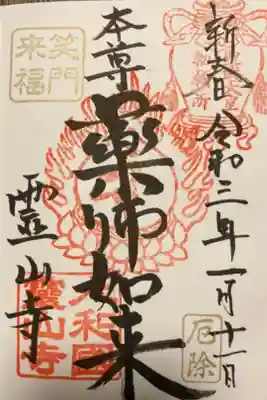 新春 令和三年一月十一日
本尊
薬師如来
霊山寺
笑門
来福
大和國
霊山寺
厄除